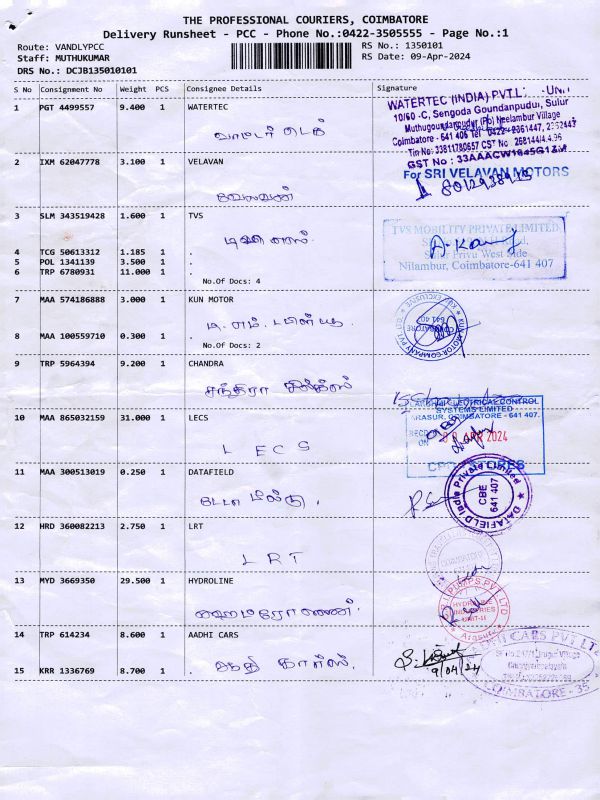 THE PROFESSIONAL COURIERS, COIMBATORE
Delivery Runsheet - PCC - Phone No.:0422-3505555 - Page No.:1
Route: VANDLYPCC
RS No.: 1350101
Staff: MUTHUKUMAR
RS Date: 09-Apr-2024
DRS No.: DCJB135010101
S No Consignment No Weight PCS Consignee Details Signature
1 PGT 4499557 9.400 1 WATERTEC
WATERTEC (INDIA) PVT.L UNI
10/60 -C, Sengoda Goundanpudui, Sulur
Muthugoundanpudur (Po) Neelambur Village
GST No : 33AAACW1845G1ZM
2 IXM 62047778 3.100 1 VELAVAN
For SRI VELAVAN MOTORS
வேலவன்
3 SLM 343519428 1.600 1 TVS
டிவிஎஸ்.
TVS MOBILITY PRIVATE LIMITED
4 TCG 50613312 1.185 1 .
5 POL 1341139 3.500 1 .
6 TRP 6780931 11.000 1 .
Nilambur, Coimbatore-641 407
No.Of Docs: 4
7 MAA 574186888 3.000 1 KUN MOTOR
KUN MOTOR COMPANY PVT
8 MAA 100559710 0.300 1 .
No.Of Docs: 2
9 TRP 5964394 9.200 1 CHANDRA
சந்திரா
10 MAA 865032159 31.000 1 LECS
ELECTRICAL CONTROL
SYSTEMS LIMITED
ARASUR, COIMBATORE - 641 407.
APR 2024
LECS
11 MAA 300513019 0.250 1 DATAFIELD
டேட்டா பீல்டு.
DATAFIELD India Private Limited
CBE
641 407
12 HRD 360082213 2.750 1 LRT
LRT
13 MYD 3669350 29.500 1 HYDROLINE
HYDROLINE
14 TRP 614234 8.600 1 AADHI CARS
AADHI CARS PVT LTD
ஆதி கார்ஸ்.
9/04/24
15 KRR 1336769 8.700 1 .
COIMBATORE - 35